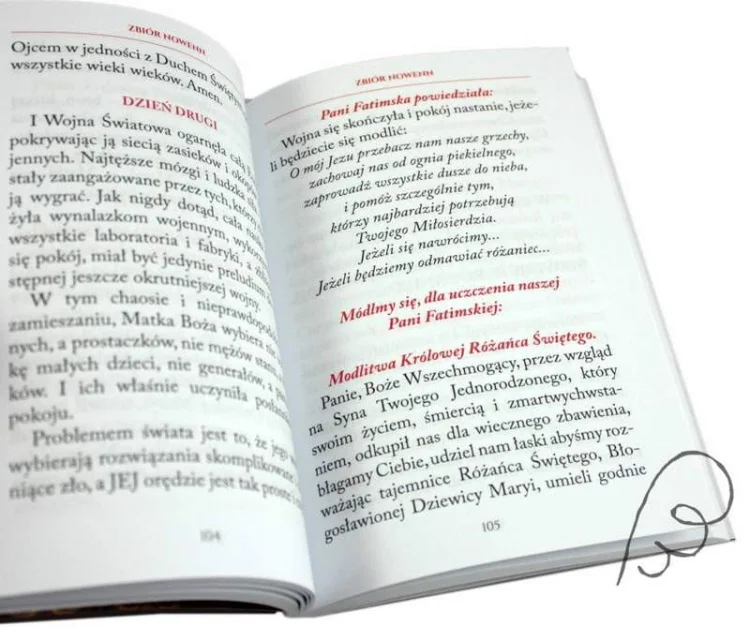 ZBIÓR NOWENN
Ojcem w jedności z Duchem
wszystkie wieki wieków. Amen.
DZIEŃ DRUGI
I Wojna Światowa ogarnęła całą
pokrywając ją siecią zasieków i
jennych. Najtęższe mózgi i ludzka
stały zaangażowane przez tych, którzy
ją wygrać. Jak nigdy dotąd, cała
żyła wynalazkom wojennym,
wszystkie laboratoria i fabryki, a
się pokój, miał być jedynie preludium
stępnej jeszcze okrutniejszej wojny.
W tym chaosie i
zamieszaniu, Matka Boża wybiera nie
nych, a prostaczków, nie mężów
kę małych dzieci, nie generałów, a
ków. I ich właśnie uczyniła
pokoju.
Problemem świata jest to, że jego
wybierają rozwiązania skomplikowane
niące zło, a JEJ orędzie jest tak proste i
104
ZBIÓR NOWENN
Pani Fatimska powiedziała:
Wojna się skończyła i pokój nastanie, jeże-
li będziecie się modlić:
O mój Jezu przebacz nam nasze grzechy,
zachowaj nas od ognia piekielnego,
zaprowadź wszystkie dusze do nieba,
i pomóż szczególnie tym,
którzy najbardziej potrzebują
Twojego Miłosierdzia.
Jeżeli się nawrócimy...
Jeżeli będziemy odmawiać różaniec...
Módlmy się, dla uczczenia naszej
Pani Fatimskiej:
Modlitwa Królowej Różańca Świętego.
Panie, Boże Wszechmogący, przez wzgląd
na Syna Twojego Jednorodzonego, który
swoim życiem, śmiercią i zmartwychwsta-
niem, odkupił nas dla wiecznego zbawienia,
błagamy Ciebie, udziel nam łaski abyśmy roz-
ważając tajemnice Różańca Świętego, Bło-
gosławionej Dziewicy Maryi, umieli godnie
105